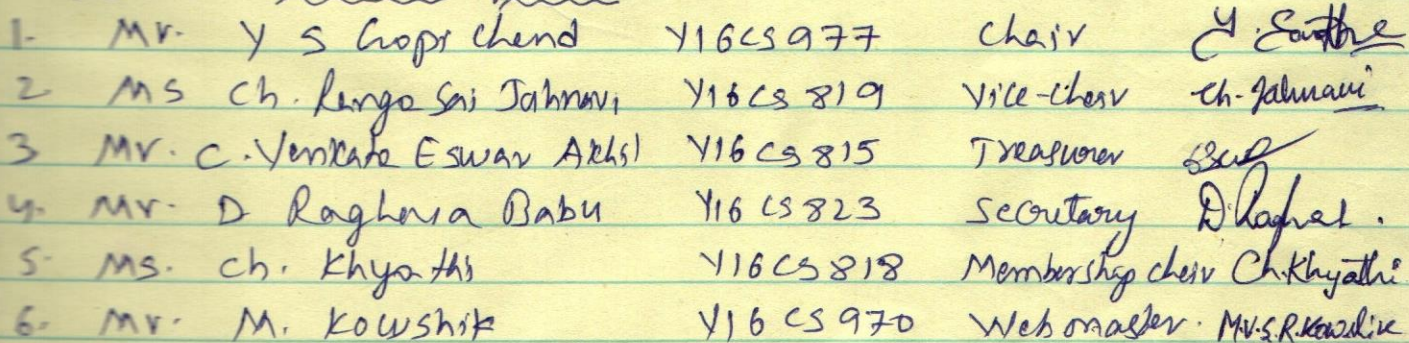 1. Mr. Y S Gopi Chand Y16CS977 Chair
2 MS Ch. Ranga Sai Jahnavi Y16CS819 Vice-Chair Ch. Jahnavi
3 Mr. C. Venkata Eswar Akhil Y16CS815 Treasurer
4. Mr. D Raghava Babu Y16CS823 Secretary D. Raghava.
5. Ms. Ch. Khyathi Y16CS818 Membership chair Ch. Khyathi
6. Mr. M. Kowshik Y16CS970 Webmaster. M.V.S.R. Kowshik